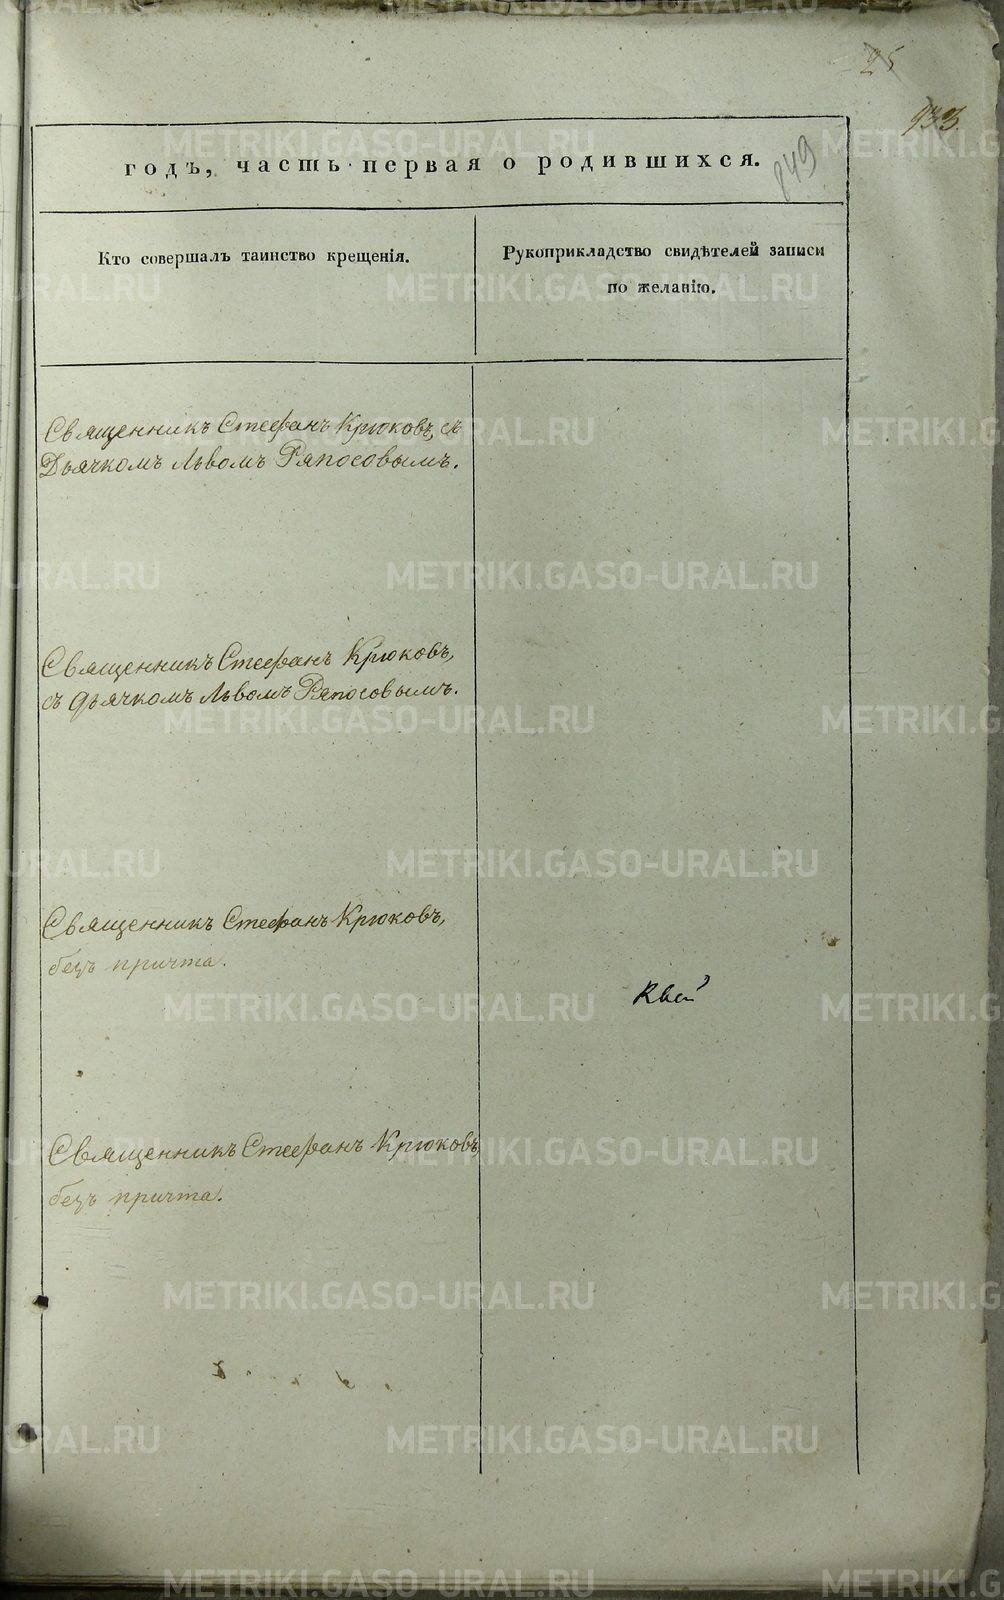 25
933.
849
годъ, часть первая о родившихся.
Кто совершалъ таинство крещенія.
Рукоприкладство свидѣтелей записи
по желанію.
Священникъ Стефанъ Крюковъ, съ
Дьячкомъ Львомъ Ряпосовымъ.
Священникъ Стефанъ Крюковъ,
съ дьячкомъ Львомъ Ряпосовымъ.
Священникъ Стефанъ Крюковъ,
безъ причта.
Священникъ Стефанъ Крюковъ,
безъ причта.
METRIKI.GASO-URAL.RU